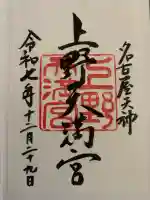 名古屋天神
上野天満宮
令和七年十二月二十九日